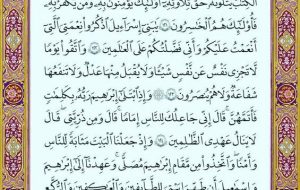 ٱلْكِتَٰبَ يَتْلُونَهُۥ حَقَّ تِلَاوَتِهِۦٓ أُو۟لَٰٓئِكَ يُؤْمِنُونَ بِهِۦ وَمَن يَكْفُرْ بِهِۦ
فَأُو۟لَٰٓئِكَ هُمُ ٱلْخَٰسِرُونَ ١٢١ يَٰبَنِىٓ إِسْرَٰٓءِيلَ ٱذْكُرُوا۟ نِعْمَتِىَ ٱلَّتِىٓ
أَنْعَمْتُ عَلَيْكُمْ وَأَنِّى فَضَّلْتُكُمْ عَلَى ٱلْعَٰلَمِينَ ١٢٢ وَٱتَّقُوا۟ يَوْمًا
لَّا تَجْزِى نَفْسٌ عَن نَّفْسٍ شَيْـًٔا وَلَا يُقْبَلُ مِنْهَا عَدْلٌ وَلَا تَنفَعُهَا
شَفَٰعَةٌ وَلَا هُمْ يُنصَرُونَ ١٢٣ وَإِذِ ٱبْتَلَىٰٓ إِبْرَٰهِۦمَ رَبُّهُۥ بِكَلِمَٰتٍ
فَأَتَمَّهُنَّ قَالَ إِنِّى جَاعِلُكَ لِلنَّاسِ إِمَامًا قَالَ وَمِن ذُرِّيَّتِى قَالَ
لَا يَنَالُ عَهْدِى ٱلظَّٰلِمِينَ ١٢٤ وَإِذْ جَعَلْنَا ٱلْبَيْتَ مَثَابَةً لِّلنَّاسِ
وَأَمْنًا وَٱتَّخِذُوا۟ مِن مَّقَامِ إِبْرَٰهِۦمَ مُصَلًّى وَعَهِدْنَآ إِلَىٰٓ إِبْرَٰهِۦمَ
وَإِسْمَٰعِيلَ أَن طَهِّرَا بَيْتِىَ لِلطَّآئِفِينَ وَٱلْعَٰكِفِينَ وَٱلرُّكَّعِ